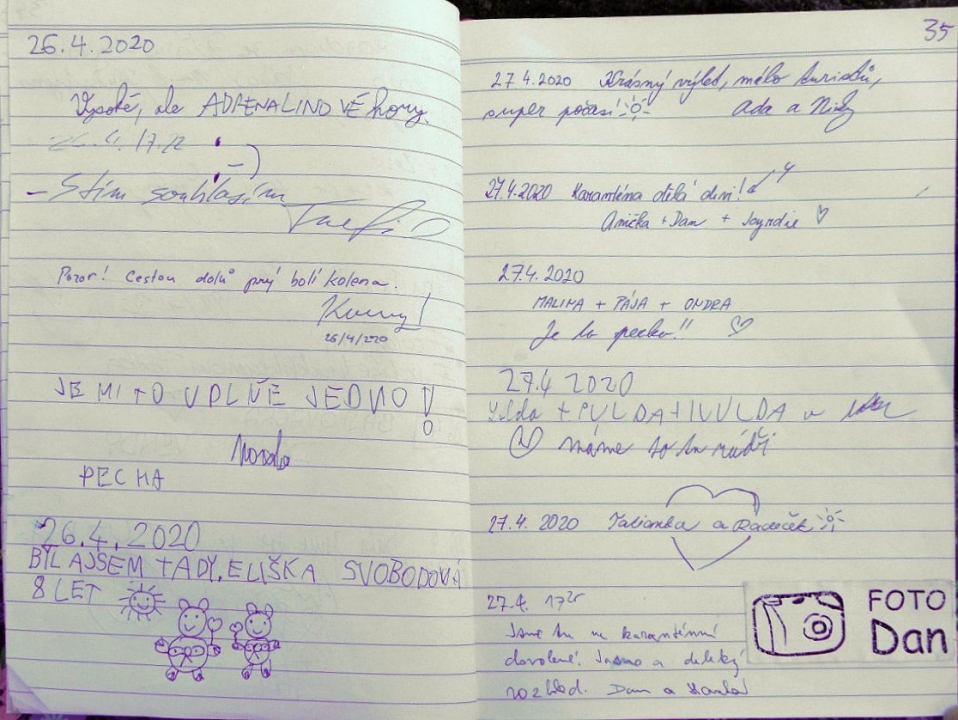 26.4.2020
Vysoké, ale ADRENALINOVÉ hory.
26.4. 17.22
- S tím souhlasím
Pozor! Cestou dolů prý bolí kolena.
26/4/2020
JE MI TO UPLNĚ JEDNO!
PECHA
26.4.2020
BYLAJSEM TADY, ELIŠKA SVOBODOVÁ
8 LET
35
27.4.2020 Krásný výhled, málo turistů,
super počasí! Ada a
27.4.2020 Karanténa dělá divi!
Anička + Dan +
27.4.2020
MALINA + PÁJA + ONDRA
Je to pecka!!
27.4 2020
máme to tu rádi
27.4.2020 Talianka a Radeček
27.4. 17
Jsme tu na karanténní
dovolené! Jasno a daleký
rozhled. Dan a
FOTO
Dan